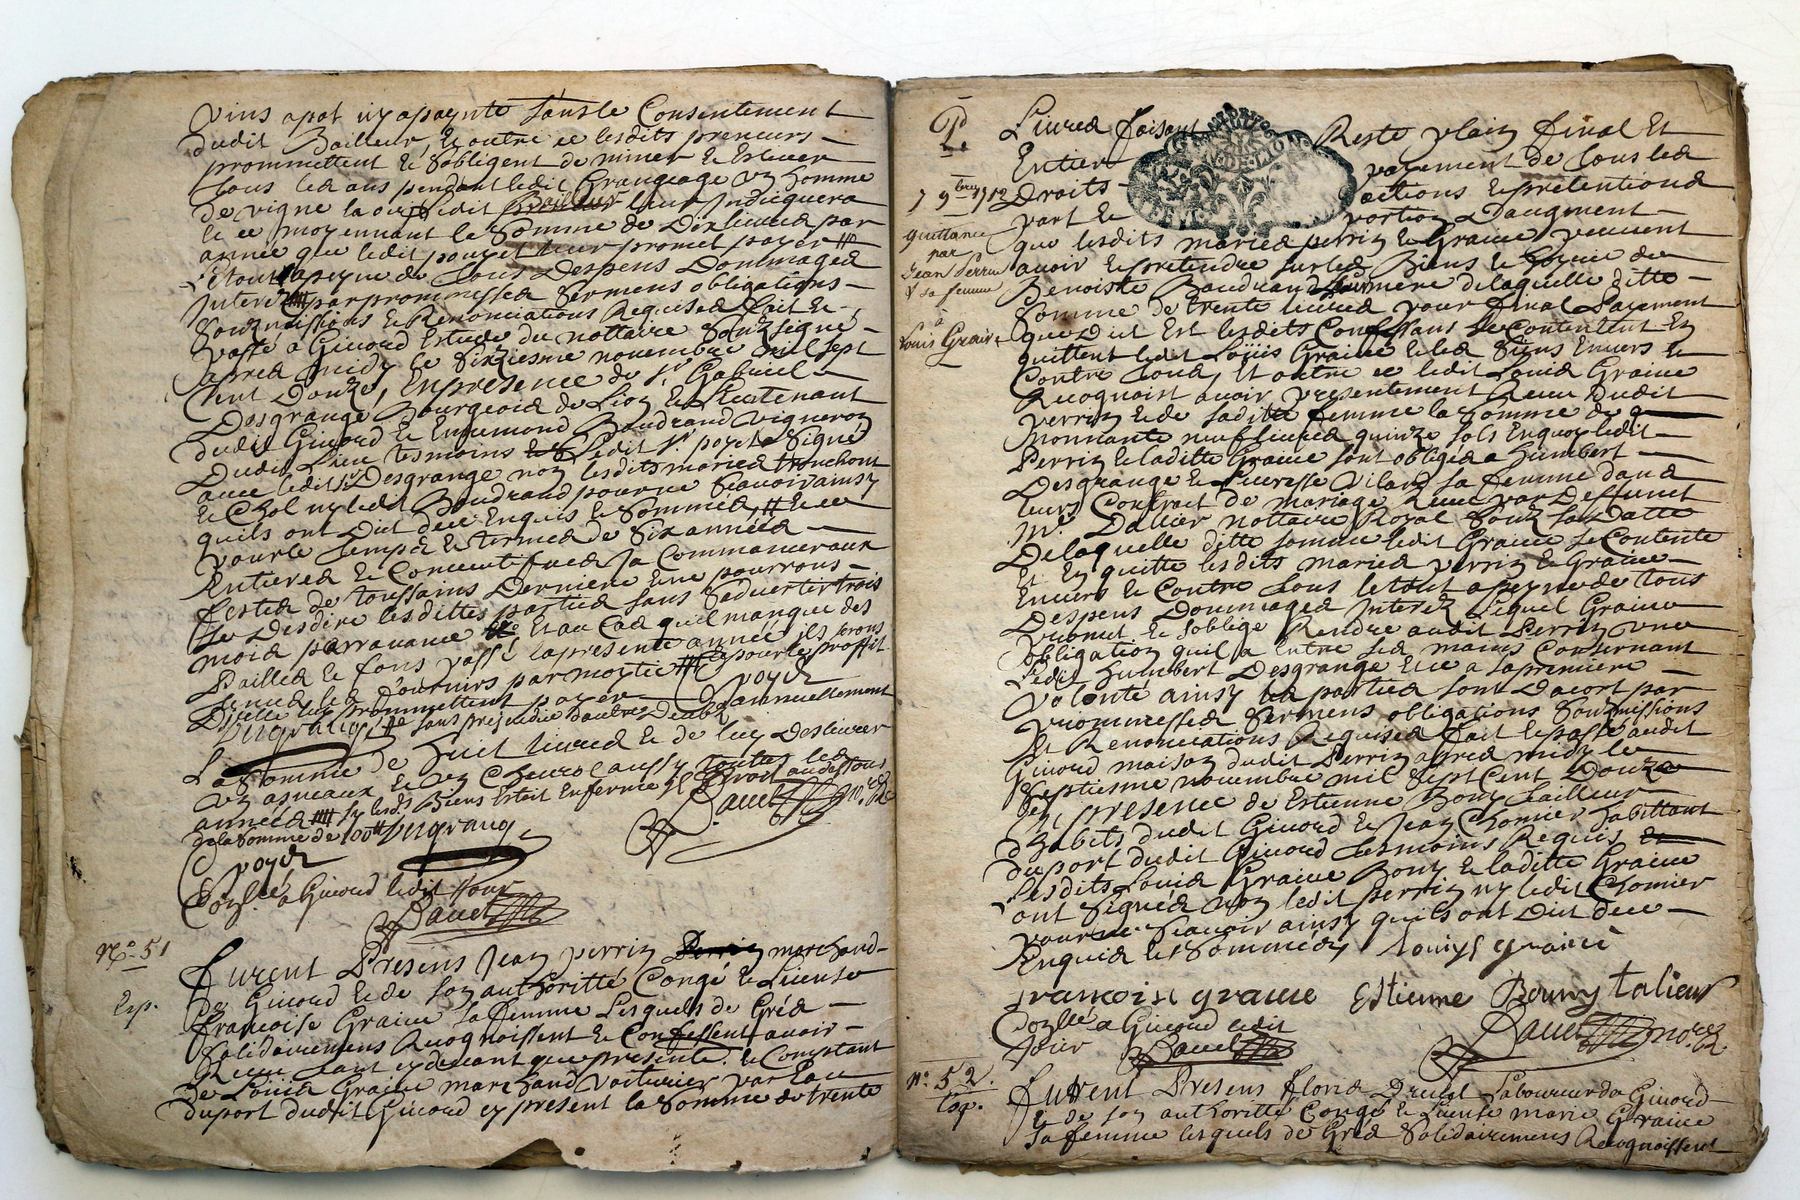 vins apot ny apaynte sans le Consentement
dudit Bailleur, Et outre ce lesdits preneurs
promettent & sobligent de miner &
tous les ans pendant ledit Grangeage un homme
de vigne la ou ledit Bailleur leur Indiquera
& ce moyennant la somme de Dix livres par
année que ledit pouzet leur promet payer #
Le tout apeyne de tous Despens Dommages
Interez par promesses sermens obligations
soubmissions & Renonciations Requises fait &
passé a Givord Estude du nottaire soubsigné
apres midy le sixiesme novembre mil sept
Cent Douze, En presence de Sr. Gabriel
Desgrange Bourgeois de Lion & Lieutenant
dudit Givord & Enemond Boudrand vigneron
dudit Lieu tesmoins ledit Sr. pouzet a signé
avec ledit Sr. Desgrange non lesdits maries tronchont
& Chol ny ledit Boudrand pour ne scavoir ainsy
quils ont Dit de ce Enquis & sommés # & ce
pour le temps & termes de six années
Entieres & Consecutives Ja Commancer aux
festes de toussains Derniere & ne pourrons
se Desdire lesdittes parties sans sadvertir trois
mois par avance Et au Cas quil manque des
Pailles & fons passé la presente année ils serons
tenus les fournirs par moytie # & pour le proffit
Dicelle ils promettent payer annuellement
# sans prejudice dautre Deub
La somme de huit livres & de luy Deslivrer
un agneaux & un Chevrot aussy toutes les
années sy lesds. Biens Estoit Enfermé
de la somme de 100#
Conllé a Givord ledit Jour
No. 51
Exp.
Furent Presens Jean perrin marchand
de Givord & de son authoritté Congé & License
francoise Graire sa femme Lesquels de Grés
solidairemens Recognoissent & Confessent avoir
Receu tant cydevant que presente. & Comptant
de Louis Graire marchand voiturier par Eau
du port dudit Givord cy present la somme de trente
Livres faisant Reste plain final Et
Entier payement de tous les
Droits actions & pretentions
part & portion & daugment
que lesdits maries perrin & Graire peuvent
avoir & pretendre sur les Biens & hoirie de
Benoiste Baudrand leur mere de laquelle ditte
somme de trente livres pour final Payement
que Dit Est lesdits Confessans se Contentent En
quittent ledit Louis Graire & les siens Envers &
Contre tous, Et outre ce ledit Louis Graire
Recognoist avoir presentement Receu dudit
perrin & de saditte femme la somme de q
monnante neuf livres quinze sols Enquoy ledit
Perrin & laditte Graire sont obliges a humbert
Desgrange & Pieresse Vilard sa femme dans
leurs Contrat de mariage Receu par Deffunct
Me. Dallier nottaire Royal soubs sa Datte
De laquelle ditte somme ledit Graire se Contente
Et En quitte lesdits maries perrin & Graire
Envers & Contre tous le tout apeyne de tous
Despens Dommages Interez Liquel Graire
promet & soblige Rendre audit Perrin une
obligation quil a Entre ses mains Concernant
Ledit humbert Desgrange & ce a sa premiere
volonté ainsy les parties sont Dacort par
promesses sermens obligations soubmissions
Et Renonciations Requises fait & passé audit
Givord maison dudit Perrin apres midy le
septiesme novembre mil sept Cent Douze
En presence de Estienne Bony tailleur
dhabits dudit Givord & Jean Chomier habittant
du port dudit Givord tesmoins Requis
Lesdits Louis Graire Bony & laditte Graire
ont signes non ledit perrin ny ledit Chomier
pour ne scavoir ainsy quils ont Dit de ce
Enquis & sommés
Louys graire
francoise graire Estienne Bouny talieur
Conllé a Givord ledit
Jour
7 9bre 1712
quittance
par
Jean Perrin
& sa femme
a
Louis Graire
No. 52.
Exp.
Furent Presens Laboureur de Givord
& de son authoritté Congé & License marie Graire
sa femme lesquels de Grés solidairemens Recognoissent